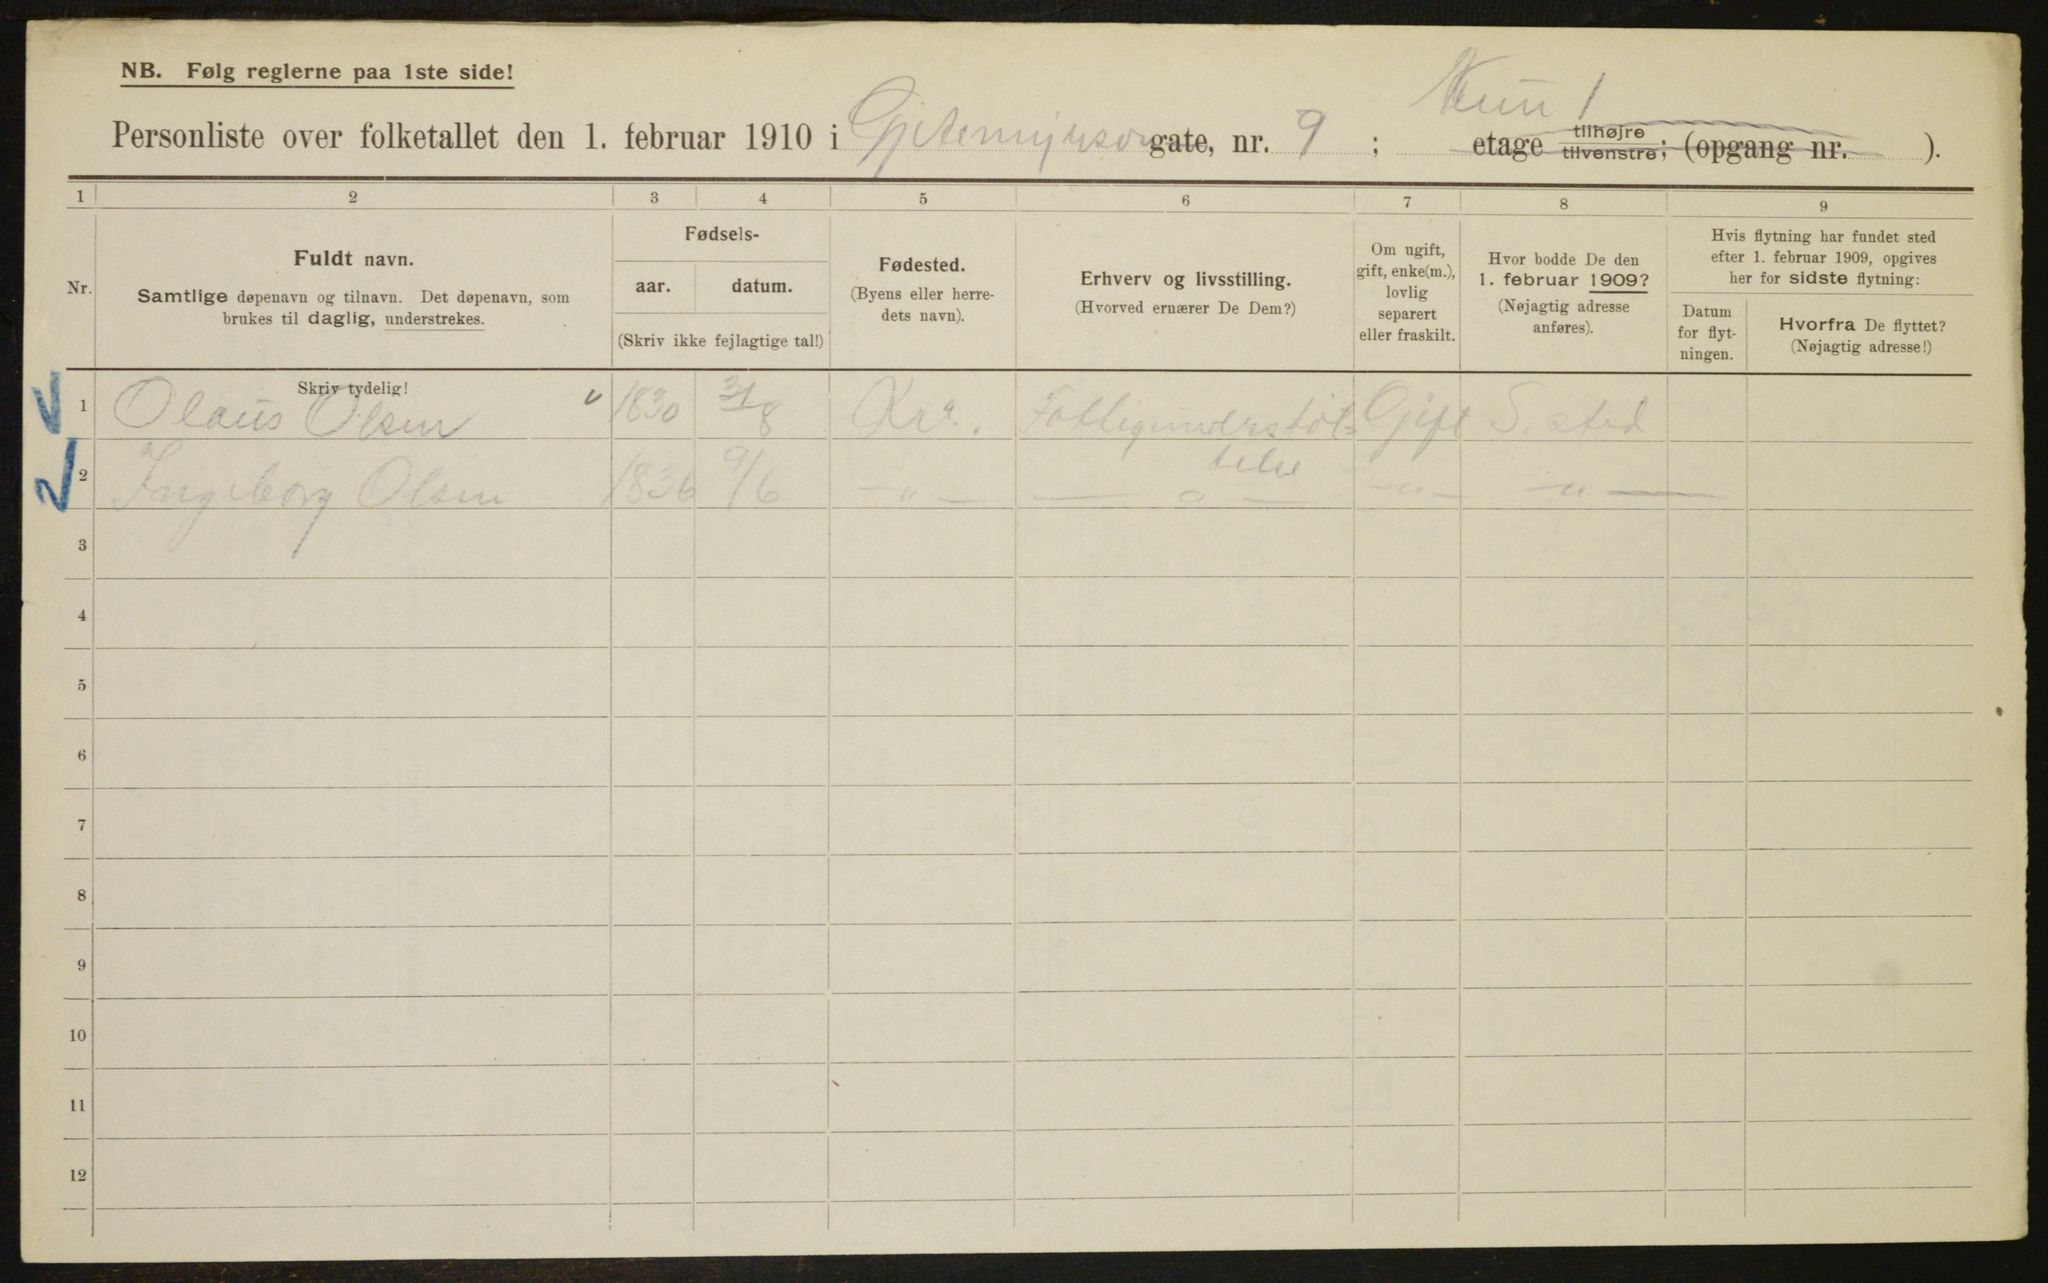 NB. Følg reglerne paa 1ste side!
Personliste over folketallet den 1. februar 1910 i gate, nr. 9 ; etage tilhøjre tilvenstre; (opgang nr. ).
1 2 3 4 5 6 7 8 9
Nr.
Fuldt navn.
Samtlige døpenavn og tilnavn. Det døpenavn, som
brukes til daglig, understrekes.
Skriv tydelig!
Fødsels-
aar. datum.
(Skriv ikke fejlagtige tal!)
Fødested.
(Byens eller herre-
dets navn).
Erhverv og livsstilling.
(Hvorved ernærer De Dem?)
Om ugift,
gift, enke(m.),
lovlig
separert
eller fraskilt.
Hvor bodde De den
1. februar 1909?
(Nøjagtig adresse
anføres).
Hvis flytning har fundet sted
efter 1. februar 1909, opgives
her for sidste flytning:
Datum
for flyt-
ningen.
Hvorfra De flyttet?
(Nøjagtig adresse!)
1 Olaus Olsen 1830 31/8 Kra. Fattigunderstøt- Gift S. sted
telse
2 Ingeborg Olsen 1836 9/6 — " — — " — — " — — " —
3
4
5
6
7
8
9
10
11
12